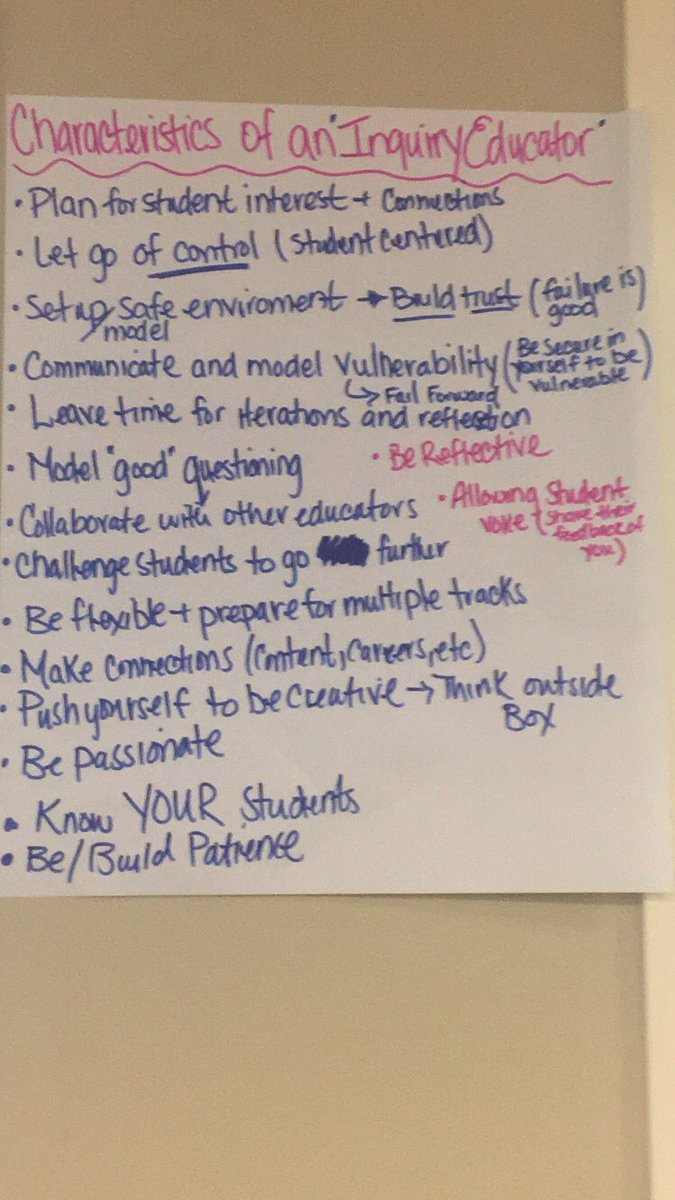 Characteristics of an "Inquiry Educator"
• Plan for student interest + Connections
• Let go of control (Student Centered)
• Set up/model safe enviroment → Build trust (failure is good)
• Communicate and model vulnerability (Be Secure in yourself to be vulnerable)
↳ Fail Forward
• Leave time for iterations and reflection
• Model "good" questioning
• Be Reflective
• Collaborate with other educators
• Allowing Student voice (share their feedback of you)
• Challenge students to go further
• Be flexible + prepare for multiple tracks
• Make connections (Content, Careers, etc)
• Push yourself to be Creative → Think outside
Box
• Be passionate
• Know YOUR Students
• Be/Build Patience